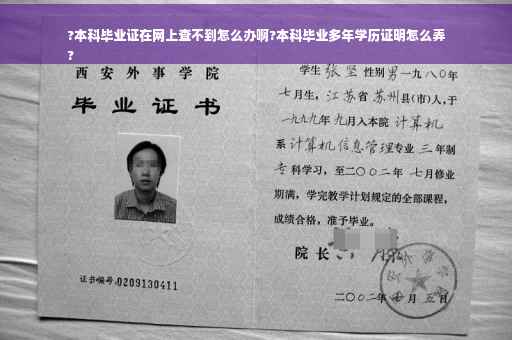 ?本科毕业证在网上查不到怎么办啊?本科毕业多年学历证明怎么弄
?
西安外事学院
毕业证书
证书编号:0209130411
学生 张坚 性别 男 一九八〇年
七月生, 江苏省 苏州县(市)人,于
一九九九年 九月入本院 计算机
系 计算机信息管理 专业 三 年制
专 科学习, 至二〇〇二年 七月修业
期满, 学完教学计划规定的全部课程,
成绩合格, 准予毕业。
院长
二〇〇二年 七 月 五 日